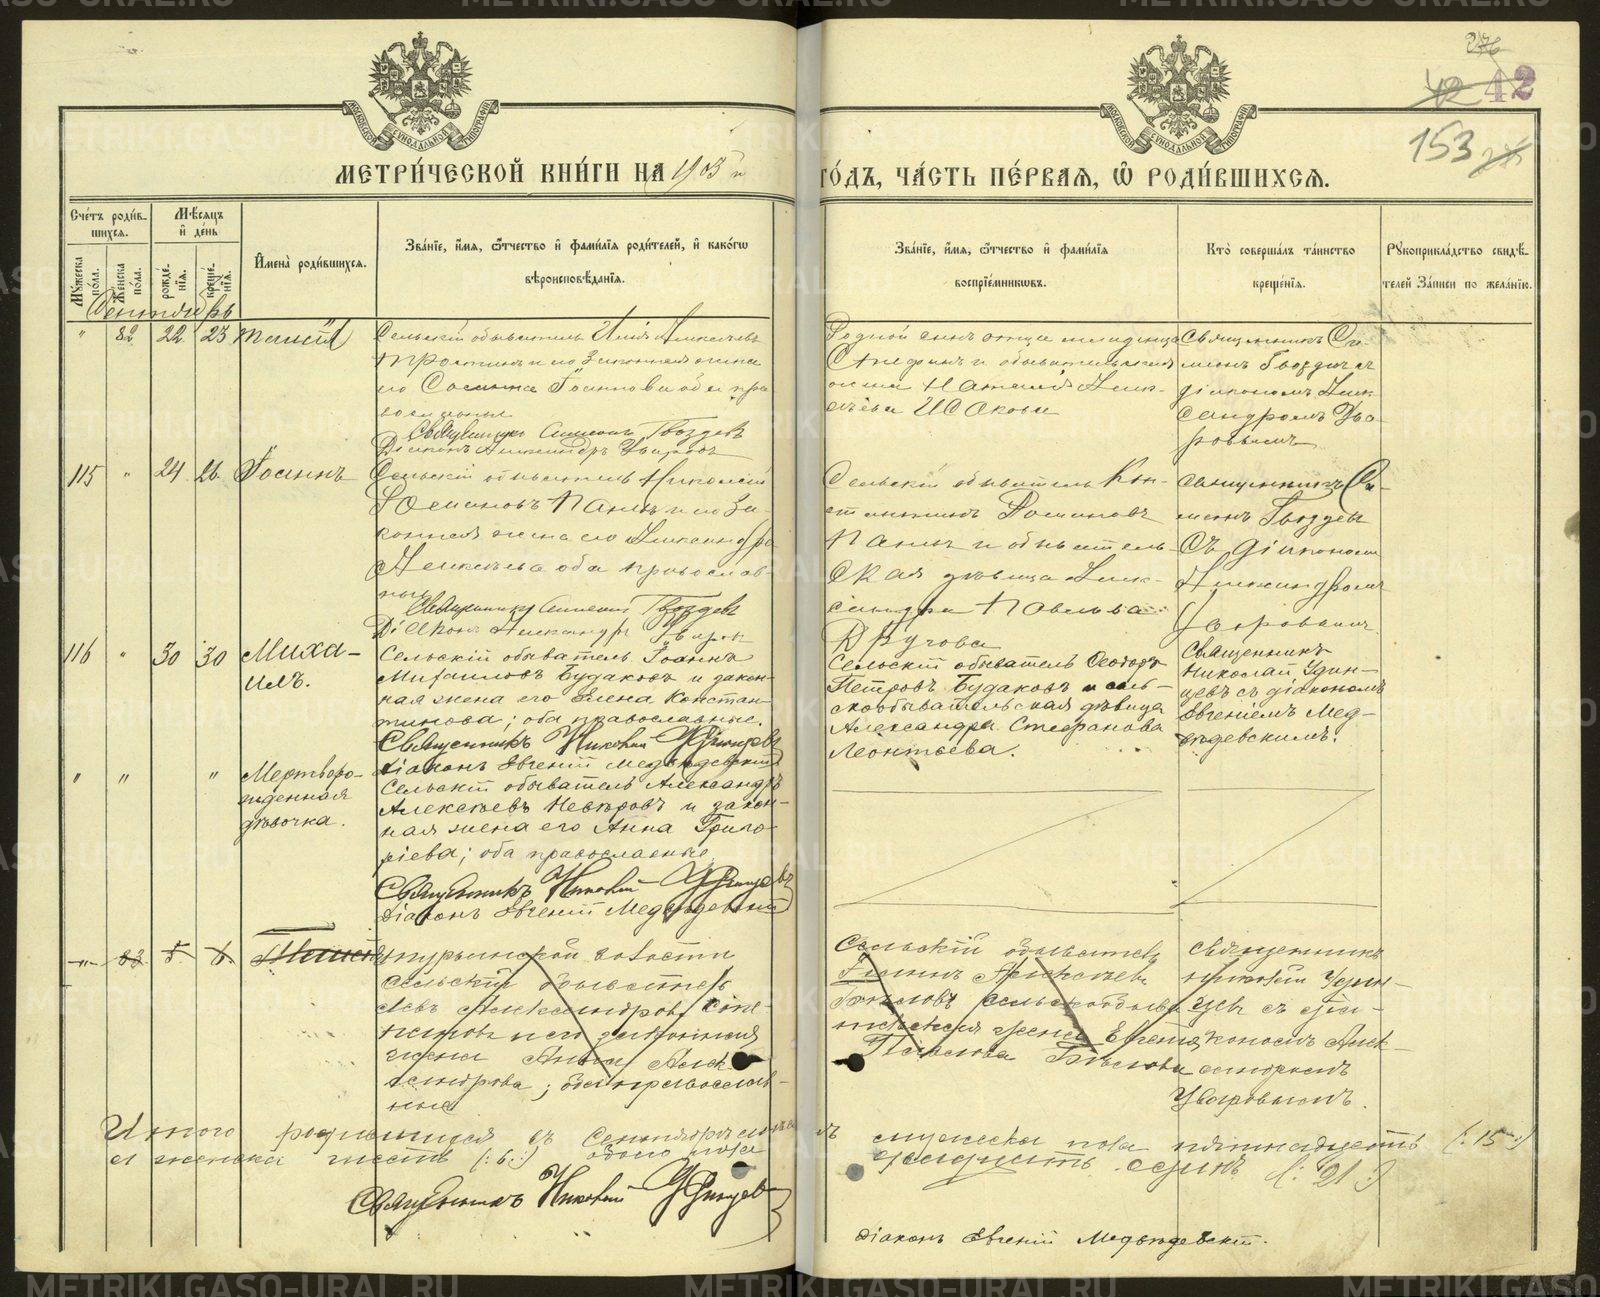 276
42 42
153
МОСКОВСКОЙ СѴНОДАЛЬНОЙ ТИПОГРАФІИ
МОСКОВСКОЙ СѴНОДАЛЬНОЙ ТИПОГРАФІИ
МЕТРИ́ЧЕСКОЙ КНИ́ГИ НА 1903 го́дъ, ЧА́СТЬ ПЕ́РВАѦ, Ѡ҆ РОДИ́ВШИХСѦ.
Сче́тъ роди́в-
шихсѧ.
Мꙋ́жеска по́ла.
Же́нска по́ла.
Мѣ́сѧцъ и҆ де́нь
рожде́-
нїѧ.
креще́-
нїѧ.
И҆мена̀ роди́вшихсѧ.
Зва́нїе, и҆́мѧ, ѻ҆́тчество и҆ фами́лїѧ роди́телей, и҆ како́гѡ
вѣроисповѣ́данїѧ.
Зва́нїе, и҆́мѧ, ѻ҆́тчество и҆ фами́лїѧ
воспрїе́мникѡвъ.
Кто̀ соверша́лъ та́инство
креще́нїѧ.
Рꙋкоприкла́дство свидѣ́-
телей за́писи по жела́нїю.
Сентябрь
" 82 22 23 Таисія
Сельскій обыватель Илія Алексѣевъ
и его законная жена
его Іоаннова оба пра
вославные
Священникъ Симеонъ Гвоздевъ
Діаконъ Александръ Уваровъ
Родной сынъ отца
Стефанъ и обывательская
Наталія Алек-
сѣева Исакова
Священникъ Си-
меонъ Гвоздевъ съ
діакономъ Алек-
сандромъ Ува-
ровымъ
115 " 24 26 Іоаннъ
Сельскій обыватель Николай
Романовъ и его за-
конная жена его Александра
Алексѣева оба православ-
ные
Священникъ Симеонъ Гвоздевъ
Діаконъ Александръ Уваровъ
Сельскій обыватель Кон-
стантинъ Романовъ
и обыватель-
ская дѣвица Алек-
сандра Павлова
Другова
Священникъ Си-
меонъ Гвоздевъ
Съ Діакономъ
Александромъ
Уваровымъ
116 " 30 30 Миха-
илъ.
Сельскій обыватель Іоаннъ
Михаиловъ Будаковъ и закон-
ная жена его Елена Констан-
тинова; оба православные.
Священникъ Николай Удинцевъ
Діаконъ Евгеній Медвѣдевскій
Сельскій обыватель Ѳеодоръ
Петровъ Будаковъ и сель-
скообывательская дѣвица
Александра Стефанова
Леонтьева.
Священникъ
Николай Удин-
цевъ съ діакономъ
Евгеніемъ Мед-
вѣдевскимъ.
" " " Мертворо-
жденная
дѣвочка.
Сельскій обыватель Александръ
Алексѣевъ Невѣровъ и закон-
ная жена его Анна Григо-
ріева; оба православные
Священникъ Николай Удинцевъ
Діаконъ Евгеній Медвѣдевскій
-"- 83 5. 6.
Турьинской волости
сельскій обыватель
Левъ Александровъ
и его законная
жена Анна Алек-
сандрова; оба православ-
ные
Сельскій обыватель
Іоаннъ Алексѣевъ
Бѣловъ сельскообыва
тельская жена Евгенія
Павлова Бѣлова
священникъ
Николай Удин-
цевъ съ діа-
кономъ Алек-
сандромъ
Уваровымъ.
Итого родившихся въ Сентябрѣ мѣсяцѣ мужеска пола пятнадцать (:15:)
и женска шесть (:6:) обоего пола двадцать одинъ (:21:)
Священникъ Николай Удинцевъ
Діаконъ Евгеній Медвѣдевскій.
METRIKI.GASO-URAL.RU